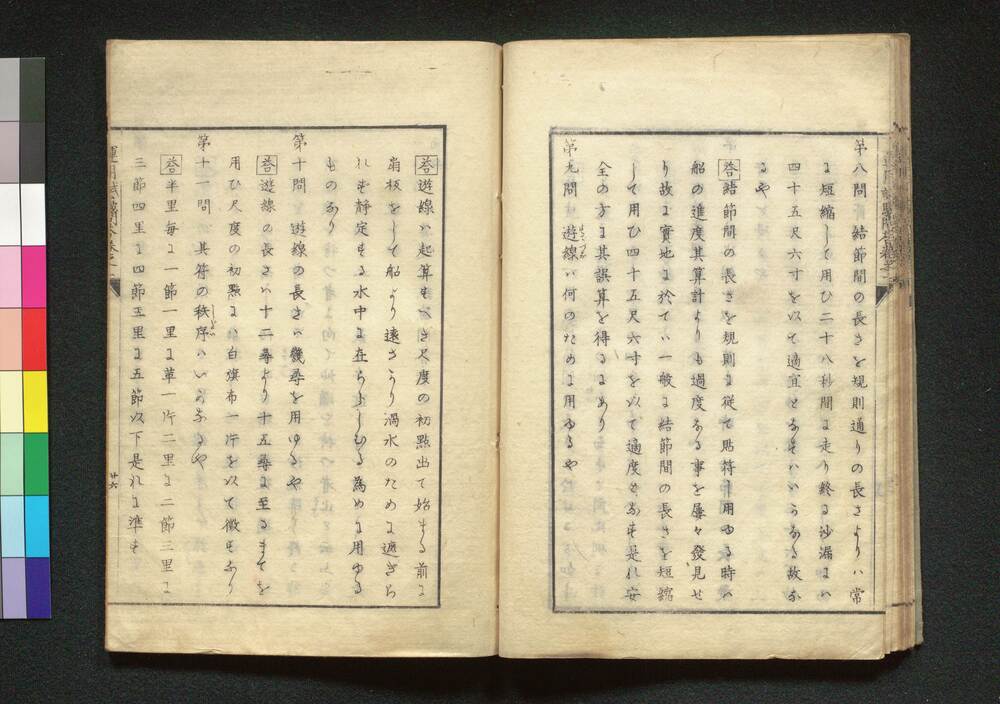 第八問 結節間の長さを規則通りの長さよりハ常
に短縮して用ひ二十八秒間に走り終る沙漏にハ
四十五尺六寸を以て適宜となすハいかなる故な
るや
答 結節間の長さを規則に従て貼符し用ゆる時ハ
船の進度其算計よりも過度なる事を屡々發見せ
り故に實地に於てハ一般に結節間の長さを短縮
して用ひ四十五尺六寸を以て適度となす是れ安
全の方に其誤算を得るにあり
第九問 遊線ハ何のために用ゆるや
答 遊線ハ起算すべき尺度の初點出て始まる前に
扇板をして船より遠さかり渦水のために遮ぎら
れす静定なる水中に在らしむる為めに用ゆる
ものなり
第十問 遊線の長さハ幾尋を用ゆるや
答 遊線の長さハ十二尋より十五尋に至るまでを
用ひ尺度の初點にハ白旗布一片を以て徴となり
第十一問 其符の秩序ハいかなるや
答 半里毎に一節一里に革一片二里に二節三里に
三節四里に四節五里に五節以下是れに準す
廿六